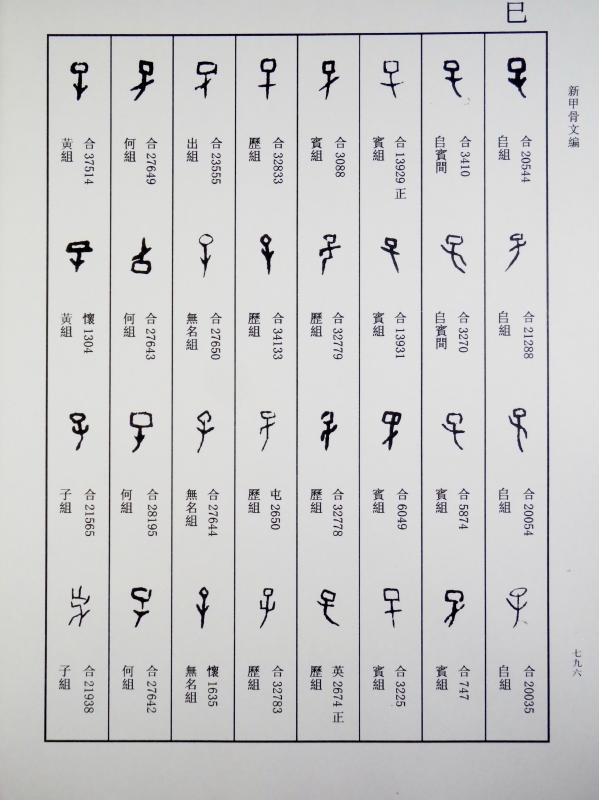 巳
新甲骨文編
合 20544
𠂤組
合 21288
𠂤組
合 20054
𠂤組
合 20035
𠂤組
合 3410
𠂤賓間
合 3270
𠂤賓間
合 5874
賓組
合 747
賓組
合 13929 正
賓組
合 13931
賓組
合 6049
賓組
合 3225
賓組
合 3088
賓組
合 32779
歷組
合 32778
歷組
英 2674 正
歷組
合 32833
歷組
合 34133
歷組
屯 2650
歷組
合 32783
歷組
合 23555
出組
合 27650
無名組
合 27644
無名組
懷 1635
無名組
合 27649
何組
合 27643
何組
合 28195
何組
合 27642
何組
合 37514
黃組
懷 1304
黃組
合 21565
子組
合 21938
子組
七九六